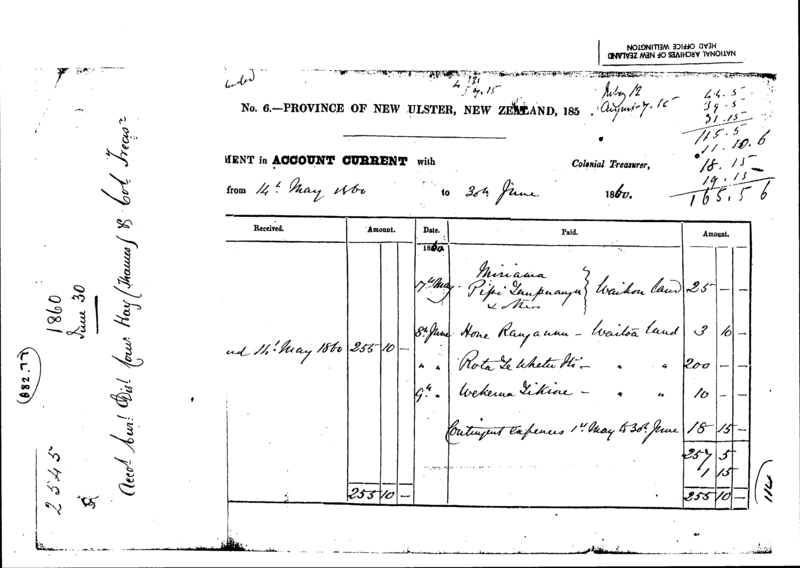 NATIONAL ARCHIVES OF NEW ZEALAND
HEAD OFFICE WELLINGTON
No. 6.—PROVINCE OF NEW ULSTER, NEW ZEALAND, 185 .
MENT in ACCOUNT CURRENT with Colonial Treasurer,
from 14th May 1860 to 30th June 1860.
44.5
39.5
31.15
115.5
11.10.6
18.15
19.15
165.5 6
Received. Amount. Date. Paid. Amount.
1860
7th May Miriama
Pipi
& others
Waihou land 25 — —
8th June Hone - Waitoa land 3 10 —
14th May 1860 255 10 —
" " Rota Te - " " 200 — —
9th " - " " 10 —
Contingent expences 1st May to 30th June 18 15 —
257 5
1 15
255 10 — 255 10 —
114
1860
June 30
Accot Curnt Dist Comr Hay (Thames) & Col. Treasr
(882.77)
2545